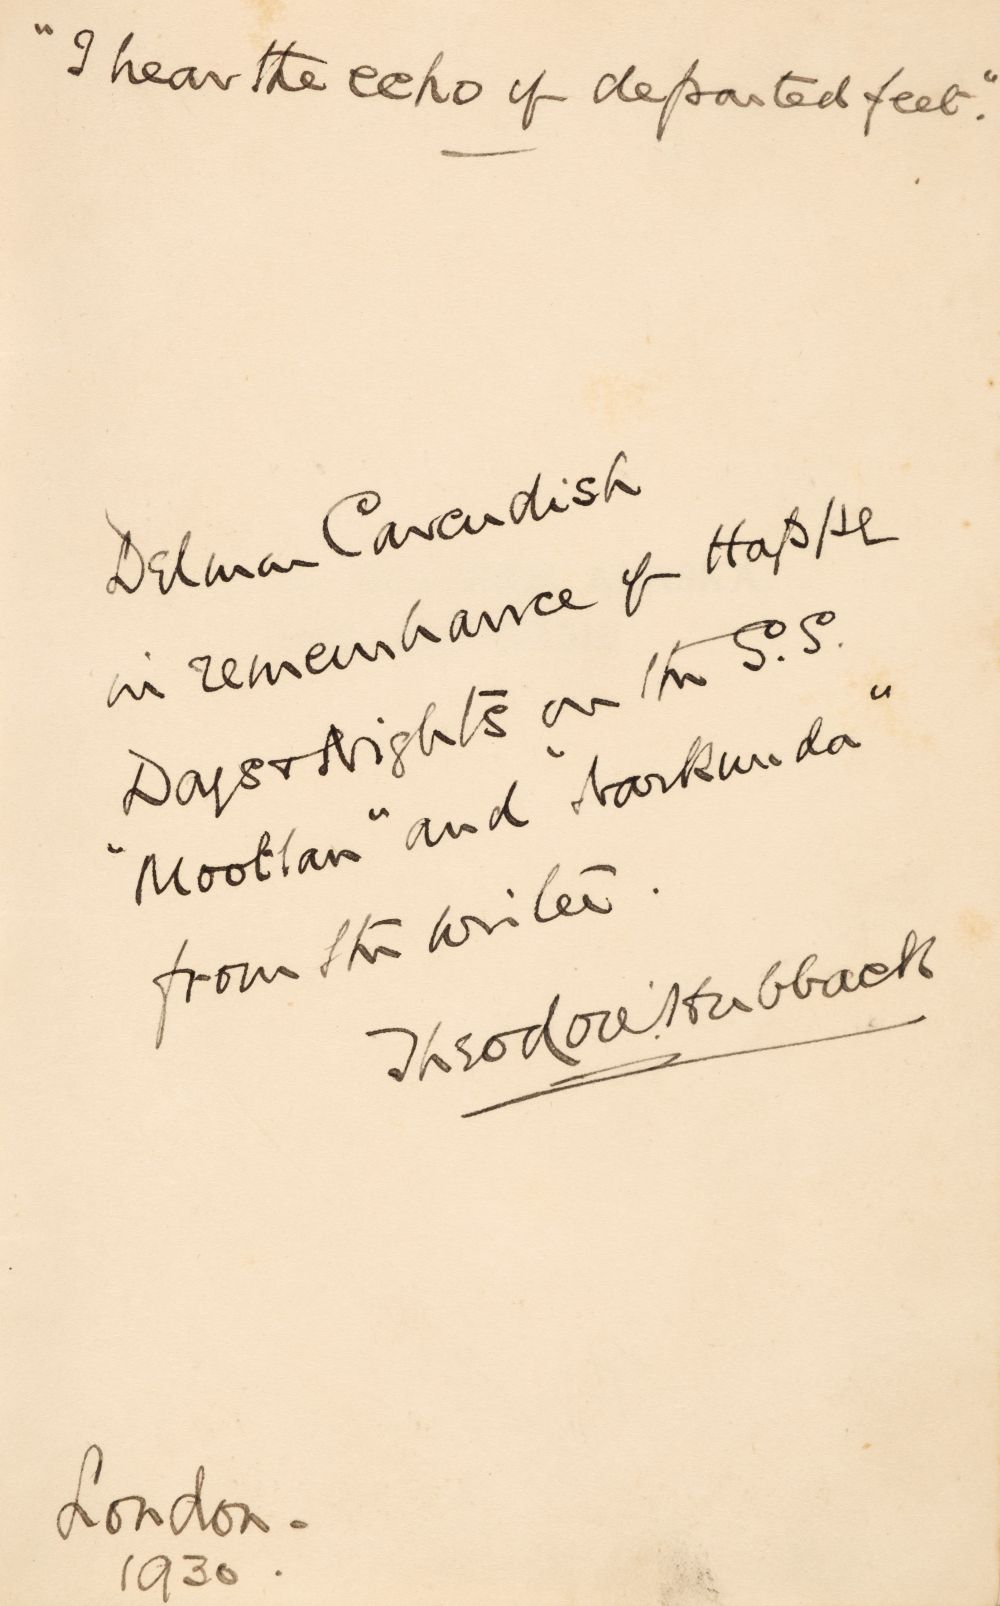 "I hear the echo of departed feet."
Delmar Cavendish
in remembrance of Happe
Days & Nights on the S.S.
"Mooltan" and "Narkunda"
from the writer.
Theodore Hubback
London -
1930.